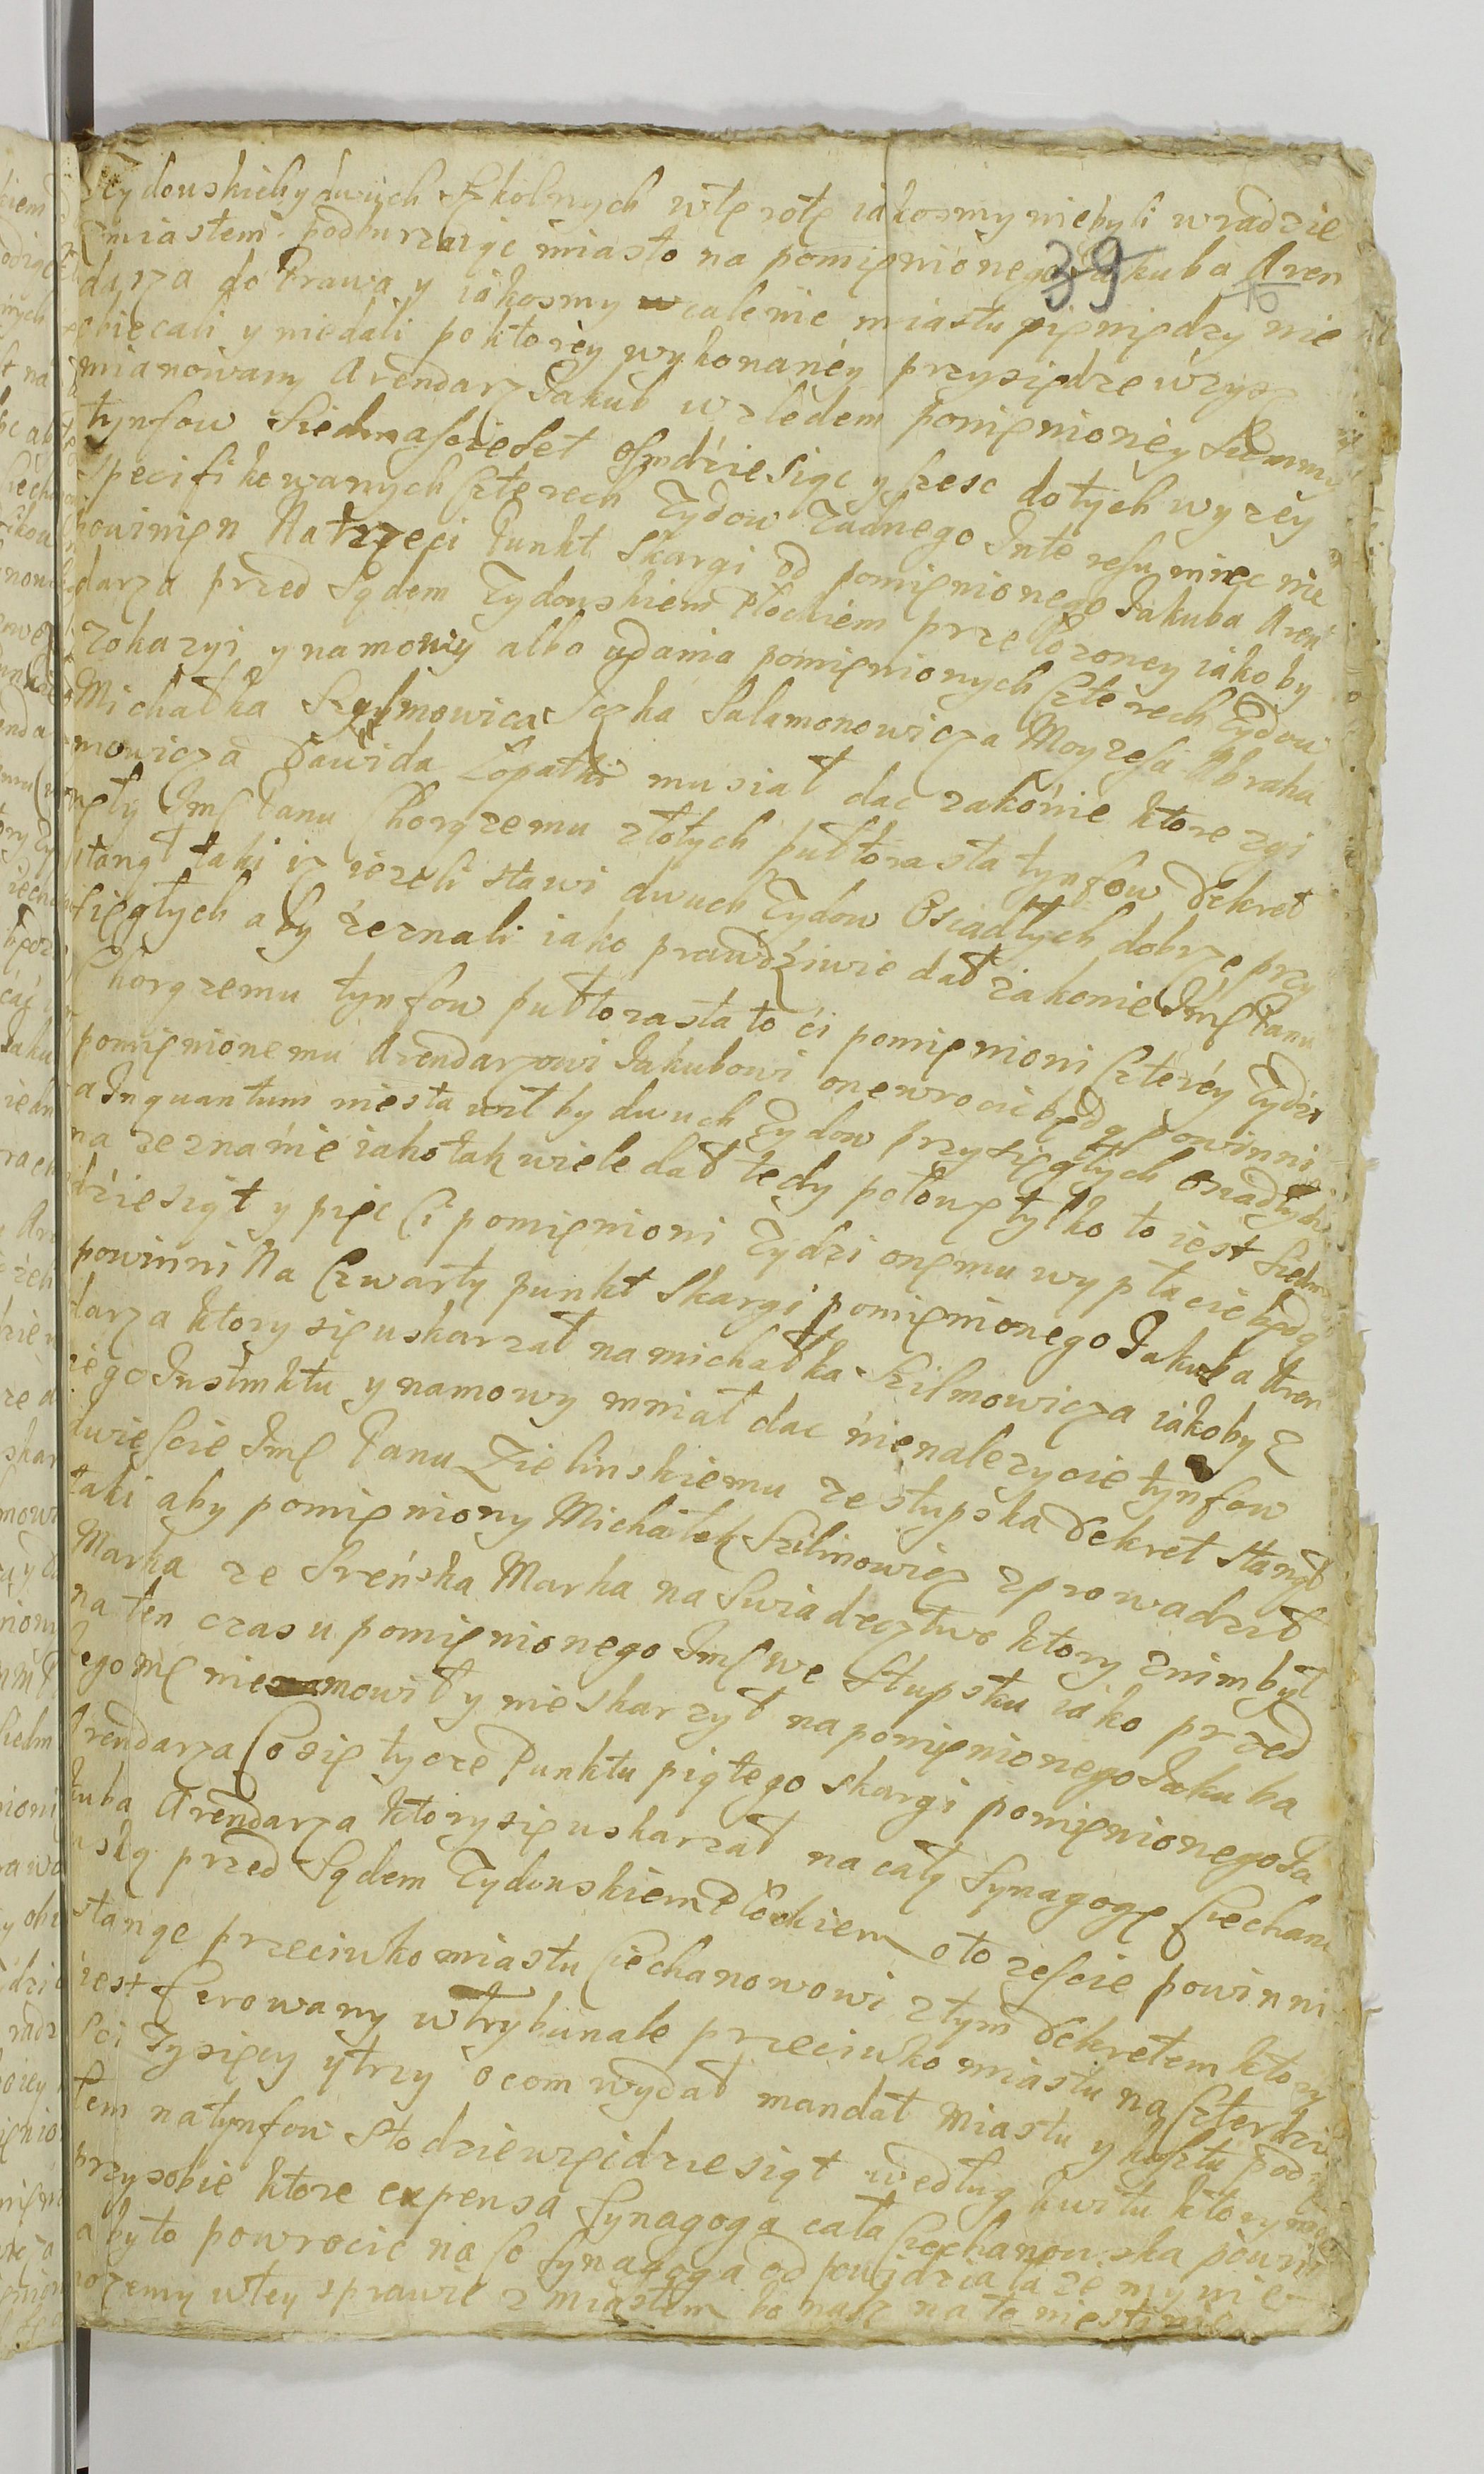 Zydowskich y dwuch Szkolnych wtę rotę iakosmy niebyli wradzie
zmiastem podburzaiąc miasto na pomięnionego Jakuba Aren
39
10
darza do Prawa y iakosmy wcale nic miastu pięniędzy nie
obięcali y niedali po ktorey wykonaney przysiędze wzysz
mianowany Arendarz Jakub wzlędem pomięnioney Summy
tynfow Siedmaścieset osmdziesiąc y szesc do tych wyzey
Specifikowanych Czterech Zydow zadnego Interessu miec nie
powinięn Na trzeci Punkt Skargi od pomięnionego Jakuba Aren
darza przed Sądem Zydowskiem Płockiem przełozoney iakoby
zokazyi y namowy albo udania pomięnionych Czterech Zydow
Michałka Szylmowicza Joska Salamonowicza Moyzesa Abraha
mowicza Dawida Łopatki musiał dac zakonie ktore zgi
nęły Jmć Panu Chorązemu złotych pułtorasta tynfow Dekret
stanął taki iz iezeli stawi dwuch Zydow Osiadłych dobrze przy
sięgłych aby zeznali iako prawdziwie dał zakonie Jmć Panu
Chorązemu tynfow pułtorasta to ci pomięnioni Cztery Zydzi
pomięnionemu Arendarzowi Jakubowi onewrocic będą powinni
a Inquantum niestawił by dwuch Zydow przysięgłych osiadłych
na zeznanie iako tak wiele dał tedy połowę tylko to iest Siedm
dziesiąt y pięc Ci pomięnioni Zydzi onęmu wypłacic będą
powinni Na Czwarty punkt Skargi pomięnionego Jakuba Aren
darza ktory się uskarzał na michałka Szilmowicza iakoby z
iego Instinktu y namowy mniał dac nienalezycie tynfow
dwieście Jmć Panu Zielinskiemu ze stupska Dekret stanął
taki aby pomięniony Michałek Szilmowicz zprowadził
Marka ze Sreńska Marka na Swiadectwo ktory znim był
na ten czas u pomięnionego Jmć we Stupsku iako przed
Jegomć nie mowił y nie skarzył na pomięnionego Jakuba
Arendarza Co się tycze Punktu piątego skargi pomięnionego Ja
kuba Arendarza ktory się uskarzał na całą Synagogę Ciechano
wską przed Sądem Zydowskiem Płockiem oto zeście powinni
stanąc przeciwko miastu Ciechanowowi ztym dekretem ktory
iest ferowany wtrybunale przeciwko miastu na Czterdzie
sci Tysięcy y trzy ocom wydał mandat miastu y kosztu pod
tem na tynfow sto dziewięcidziesiąt według kwitu ktory ma
przysobie ktore expensa Synagoga cała Ciechanowska powin
aby to powrocic na Co Synagoga odpowidziała ze my nie
mozemy wtey sprawie z miastem bo nasz na to niest